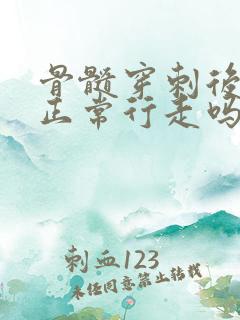 骨髓穿刺後
正常行走吗
刺血123
未经同意禁止转载